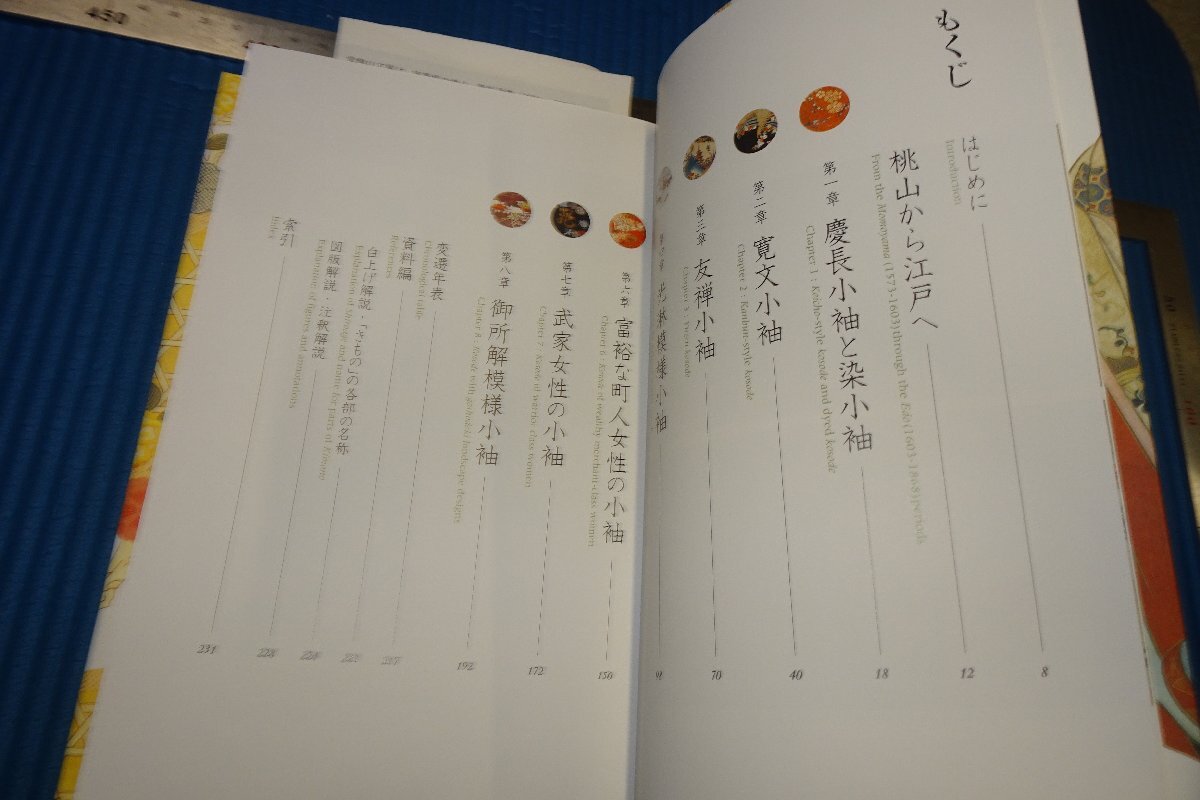 もくじ
はじめに
Introduction
8
桃山から江戸へ
From the Momoyama (1573-1603) through the Edo (1603-1868) periods
12
第一章 慶長小袖と染小袖
Chapter 1 : Keicho-style kosode and dyed kosode
18
第二章 寛文小袖
Chapter 2 : Kanbun-style kosode
40
第三章 友禅小袖
Chapter 3 : Yuzen kosode
70
模様小袖
第六章 富裕な町人女性の小袖
Chapter 6 : Kosode of wealthy merchant-class women
150
第七章 武家女性の小袖
Chapter 7 : Kosode of warrior-class women
172
第八章 御所解模様小袖
Chapter 8 : Kosode with goshodoki landscape designs
192
変遷年表
Chronological table
資料編
References
白上げ解説・「きもの」の各部の名称
Explanation of Shiraage and name for parts of Kimono
図版解説・注釈解説
Explanation of figures and annotations
228
索引
Index
231
450